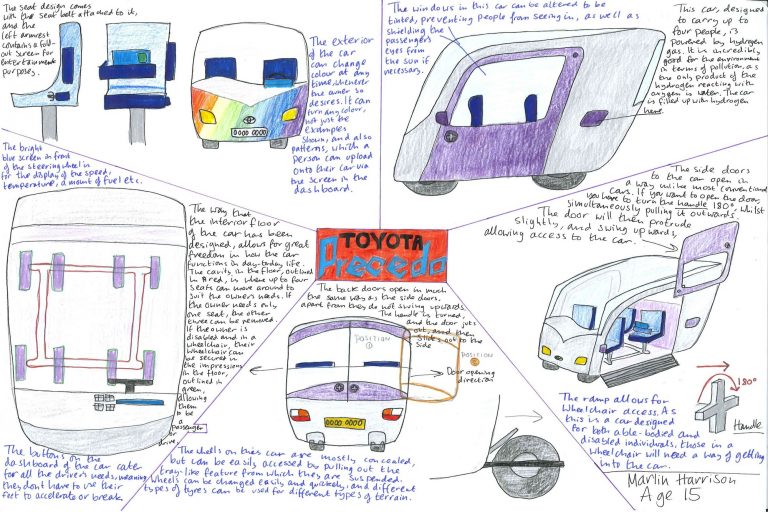 The seat design comes
with the seat belt attached to it,
and the
left armrest
contains a fold-
out screen for
entertainment
purposes.
The exterior
of the car
can change
colour at any
time, whenever
the owner so
desires. It can
turn any colour,
not just the
examples
shown, and also
patterns, which a
person can upload
onto their car via
the screen in the
dashboard.
0000 0000
The windows in this car can be altered to be
tinted, preventing people from seeing in, as well as
shielding the
passengers
eyes from
the sun if
necessary.
This car, designed
to carry up to
four people, is
powered by hydrogen
gas. It is incredibly
good for the environment
in terms of pollution, as
the only product of the
hydrogen reacting with
oxygen is water. The car
is filled up with hydrogen
here.
The bright
blue screen in front
of the steering wheel is
for the display of the speed,
temperature, amount of fuel etc.
The way that
the interior floor
of the car has been
designed, allows for great
freedom in how the car
functions in day-to-day life.
The cavity in the floor, outlined
in red, is where up to four
seats can move around to
suit the owners needs. If
the owner needs only
one seat, the other
three can be removed.
If the owner is
disabled and in a
wheelchair, their
wheelchair can
be secured in
the impressions
in the floor,
outlined in
green,
allowing
them to
be a
passenger
or
drive.
The buttons on the
dashboard of the car cater
for all the drivers needs, meaning
they don't have to use their
feet to accelerate or break.
TOYOTA
Precedo
The back doors open in much
the same way as the side doors,
apart from they do not swing upwards.
The handle is turned,
and the door juts
out, and then
slides out to the
side
POSITION
1
POSITION
2
Door opening
direction
0000 0000
The side doors
to the car open in
a way unlike most conventional
cars. If you want to open the doors,
you have to turn the handle 180°, whilst
simultaneously pulling it outwards.
The door will then protrude
slightly, and swing upwards,
allowing access to the car.
180°
Handle
The ramp allows for
wheelchair access. As
this is a car designed
for both able-bodied and
disabled individuals, those in a
wheelchair will need a way of getting
into the car.
The wheels on this car are mostly concealed,
but can be easily accessed by pulling out the
tray-like feature from which they are suspended.
Wheels can be changed easily and quickly, and different
types of tyres can be used for different types of terrain.
Marlin Harrison
Age 15